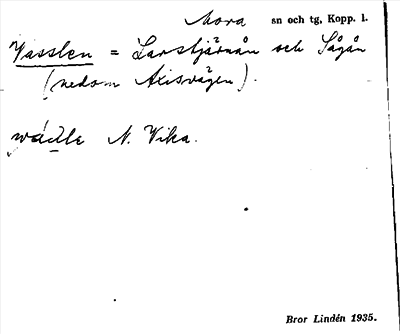 Mora sn och tg, Kopp. l.
Vasslen = Larstjärnån och Sågån
(nedom Axisvägen).
N. Vika.
Bror Lindén 1935.